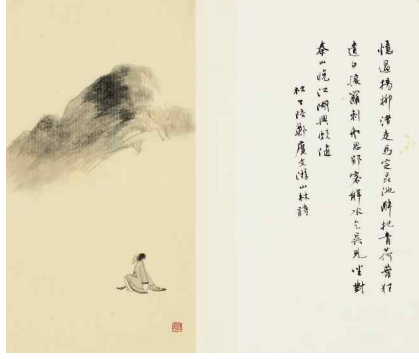 憶過楊柳渚走馬定昆池醉把青荷葉狂
遺白接羅刺船思郢客解水乞吳兒坐對
秦山晚江湖興頗隨
杜公陪鄭廣文游山林詩